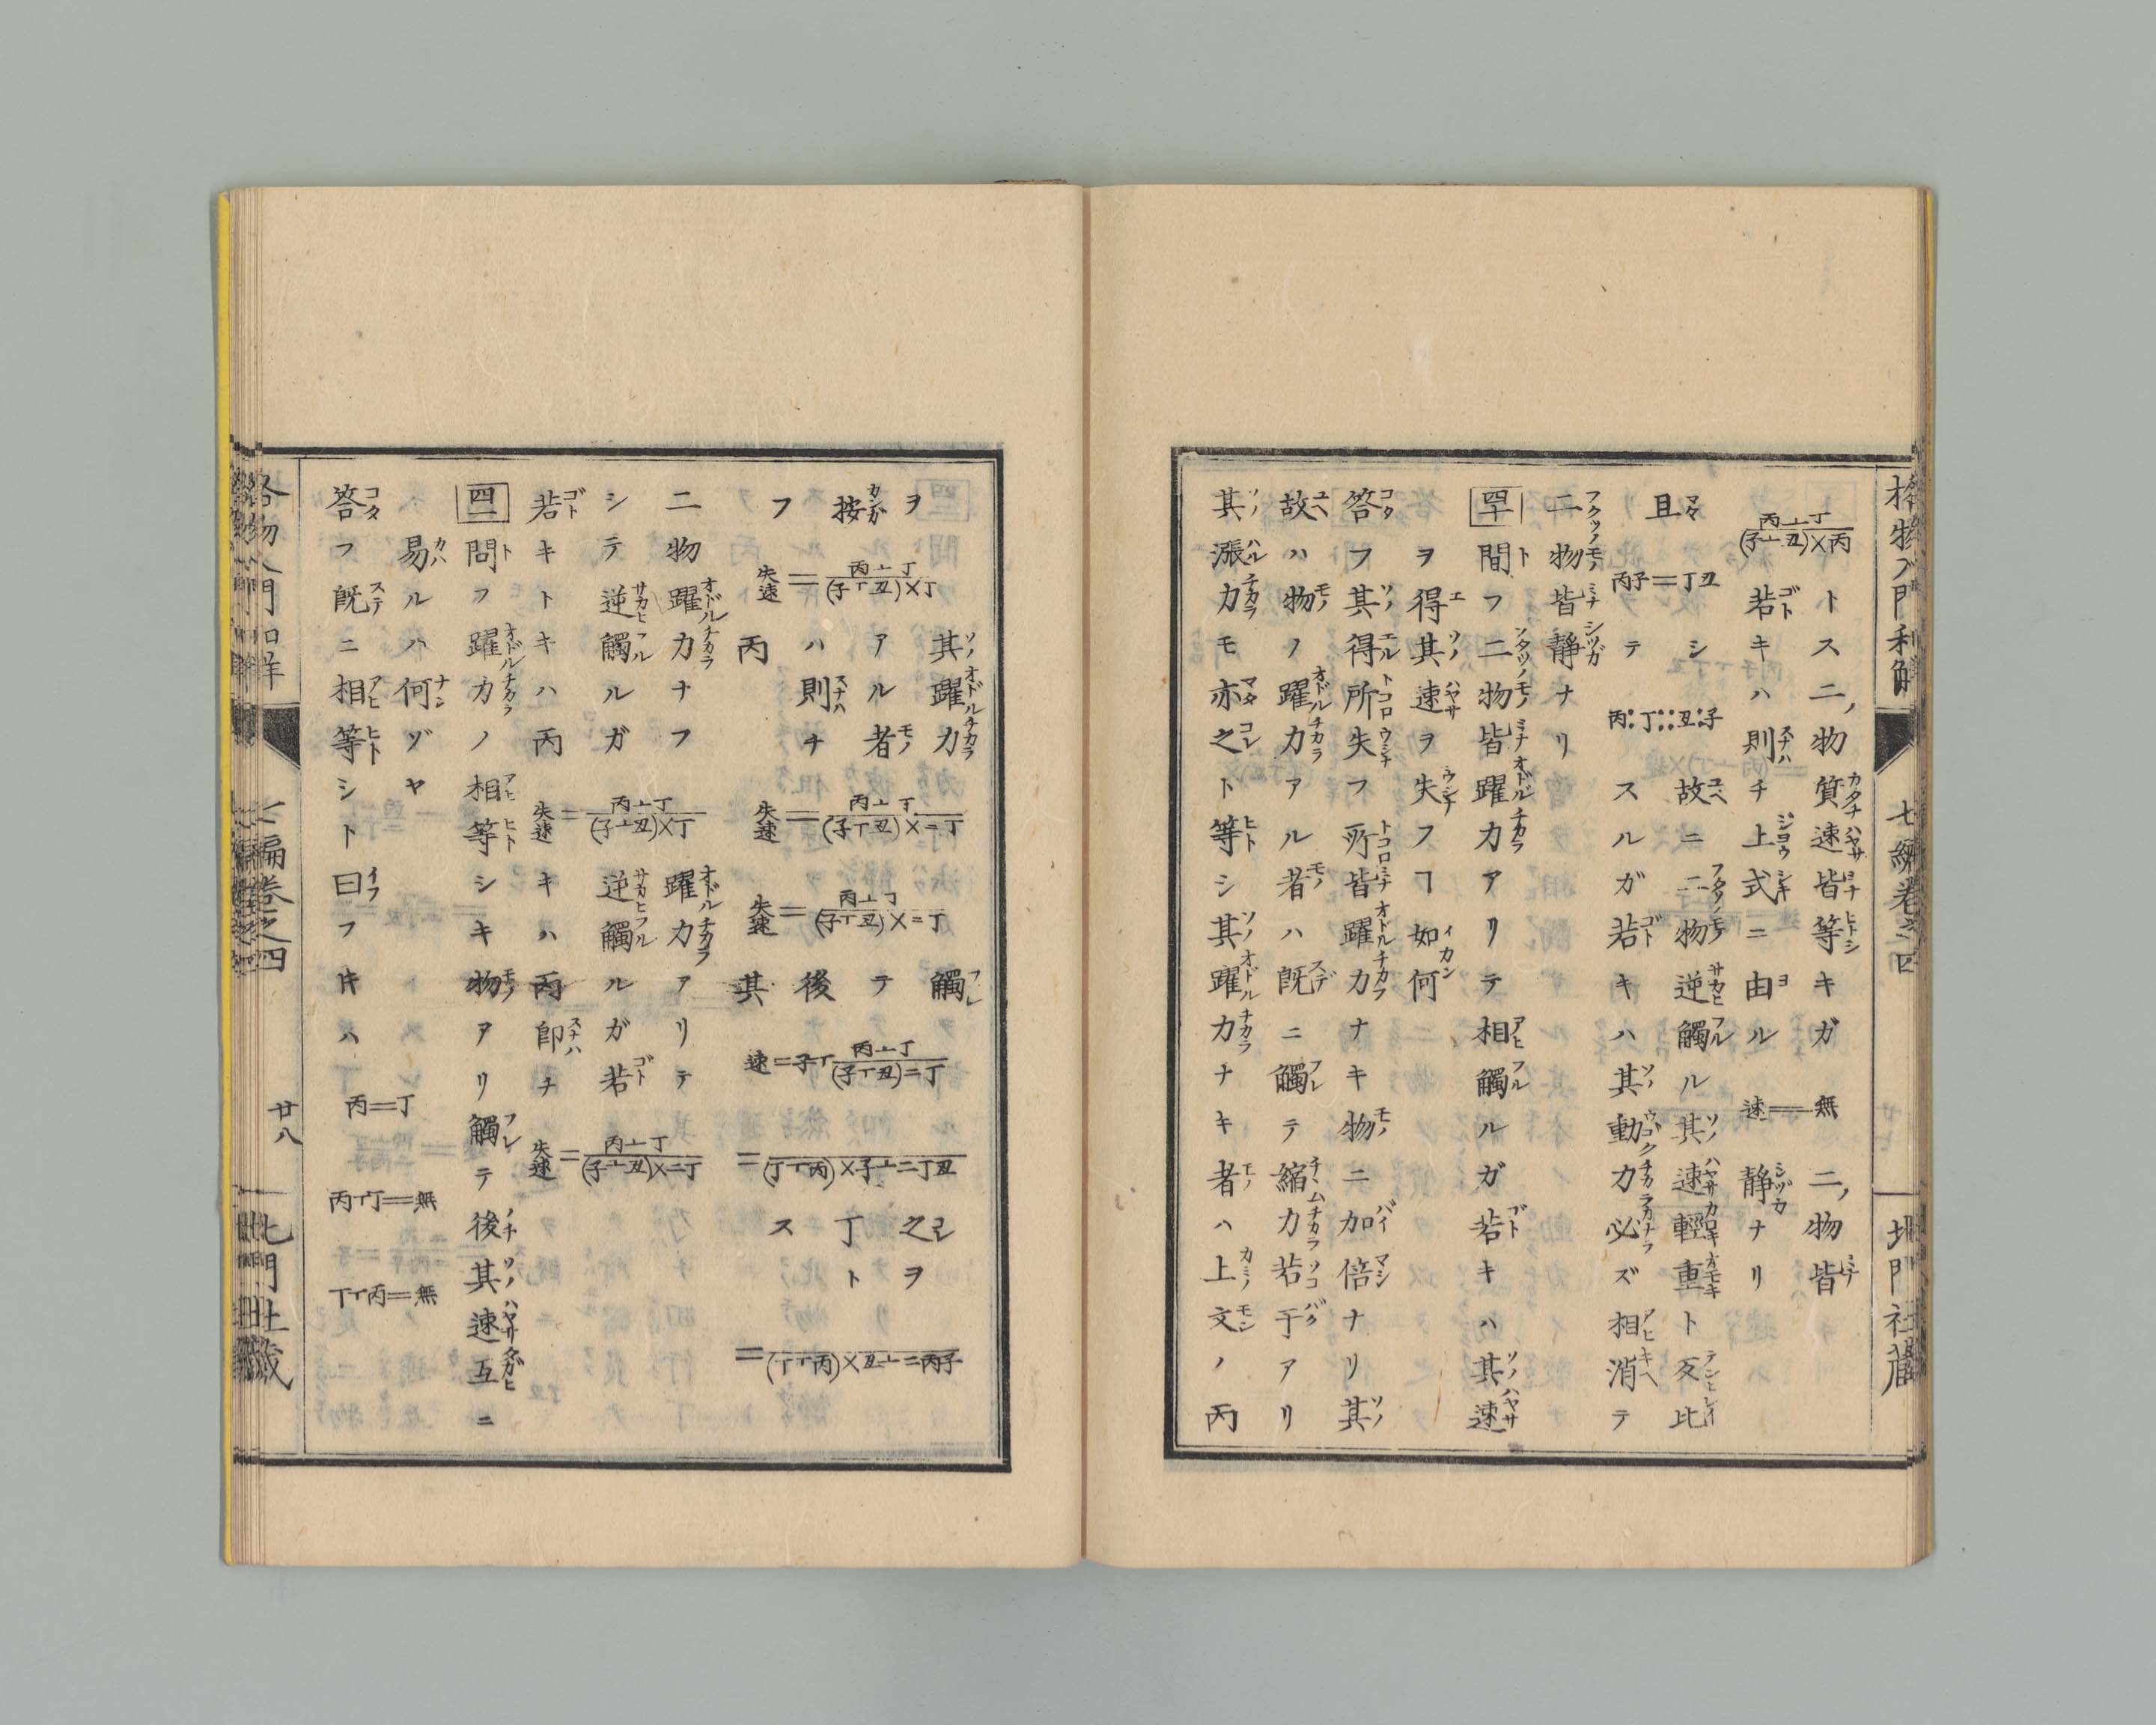 格物入門和解 七編卷之四 北門社蔵
丙⊥丁
(子⊥丑)×丙
トス二物質速皆等キガ 速＝無 二物皆
若キハ則チ上式ニ由ル 静ナリ
且シ 故ニ二物逆觸ル其速輕重ト反比
丙子＝丁丑 テ 丙:丁::丑:子 スルガ若キハ其動力必ズ相消テ
二物皆静ナリ
四十 問フ二物皆躍力アリテ相觸ルガ若キハ其速
ヲ得其速ヲ失フヿ如何
答フ其得所失フ所皆躍力ナキ物ニ加倍ナリ其
故ハ物ノ躍力アル者ハ既ニ觸テ縮力若干アリ
其漲力モ亦之ト等シ其躍力ナキ者ハ上文ノ丙
其躍力 觸 之ヲ
ヲ アル者 テ 丁ト
按 ハ則チ 後 ス
フ 丙 其
失速＝丙⊥丁
(子丅丑)×丁
失速＝丙⊥丁
(子丅丑)×二丁
失速＝丙⊥丁
(子丅丑)×二丁
速＝子丅丙⊥丁
(子丅丑)二丁
＝(丁丅丙)×子⊥二丁丑
＝(丁丅丙)×丑⊥二丙子
二物躍力ナフ 躍力アリテ
シテ逆觸ルガ 逆觸ルガ若
若キトキハ丙 失速＝丙⊥丁
(子⊥丑)×丁 キハ丙卽チ 失速＝丙⊥丁
(子⊥丑)×二丁
四一 問フ躍力ノ相等シキ物アリ觸テ後其速互ニ
易ルハ何ゾヤ
答フ既ニ相等シト曰フ片ハ 丙＝丁 丙丅丁＝無 丁丅丙＝無
格物入門和解 七編卷之四 廿八 北門社蔵